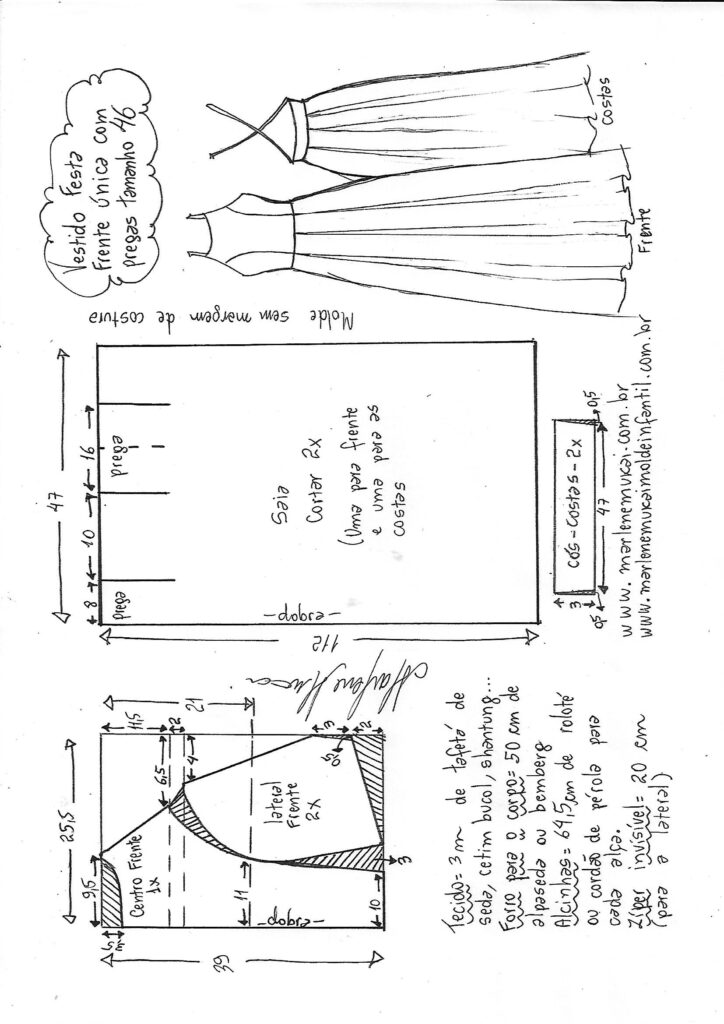 Vestido Festa
Frente única com
pregas tamanho 46
Costas
Frente
Molde sem margem de costura
47
8
10
16
prega
prega
Saia
Cortar 2x
(Uma para frente
e uma para as
costas
-dobra-
112
cós-costas-2x
47
3
0,5
0,5
www.marlenemukai.com.br
www.marlenemukaimoldeinfantil.com.br
Marlene Mukai
25,5
9,5
6,5
11,5
21
2
4
3
0,5
2
Centro Frente
1x
lateral
Frente
2x
11
-dobra-
10
3
39
Tecido= 3 m de tafetá de
seda, cetim bucol, shantung...
Forro para o corpo= 50 cm de
alpaseda ou bemberg
Alcinhas= 64,5cm de roloté
ou cordão de pérola para
cada alça.
Zíper invisível= 20 cm
(para a lateral)